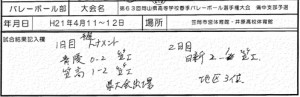 バレーボール部 大会名 第63回岡山県高等学校春季バレーボール選手権大会 備中支部予選
年月日 H21年4月11~12日 場所 笠岡市営体育館・井原高校体育館
試合結果記入欄
1日目 トーナメント 2日目
0-2 笠工 日新 2- 笠工
笠高 1-2 笠工 地区3位
県大会出場